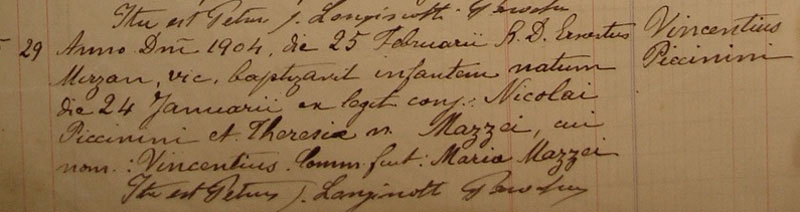 Ita est Petrus J. Langinotti Parochus
29 Anno Dni 1904, die 25 Februarii R. D. Ernestus
Vincentius
Piccinini
Mizzan, vic. baptizavit infantem natum
die 24 Januarii ex legit conj: Nicolai
Piccinini et Theresia n. Mazzei, cui
nom: Vincentius. Comm. fuit: Maria Mazzei
Ita est Petrus J. Langinotti Parochus